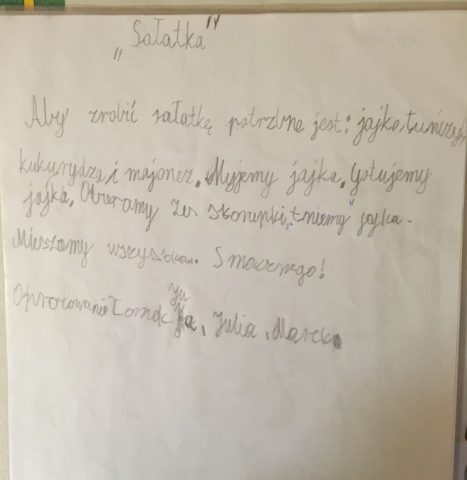 „Sałatka"
Aby zrobić sałatkę potrzbne jest: jajko, tuńczyk,
kukurydza, i majonez. Myjemy jajka. Gotujemy
jajka. Obieramy ze skorupki, tniemy jajka.
Mieszamy wszystko. Smacznego!
Opracowanie Tomek Ju, Julia, Marek